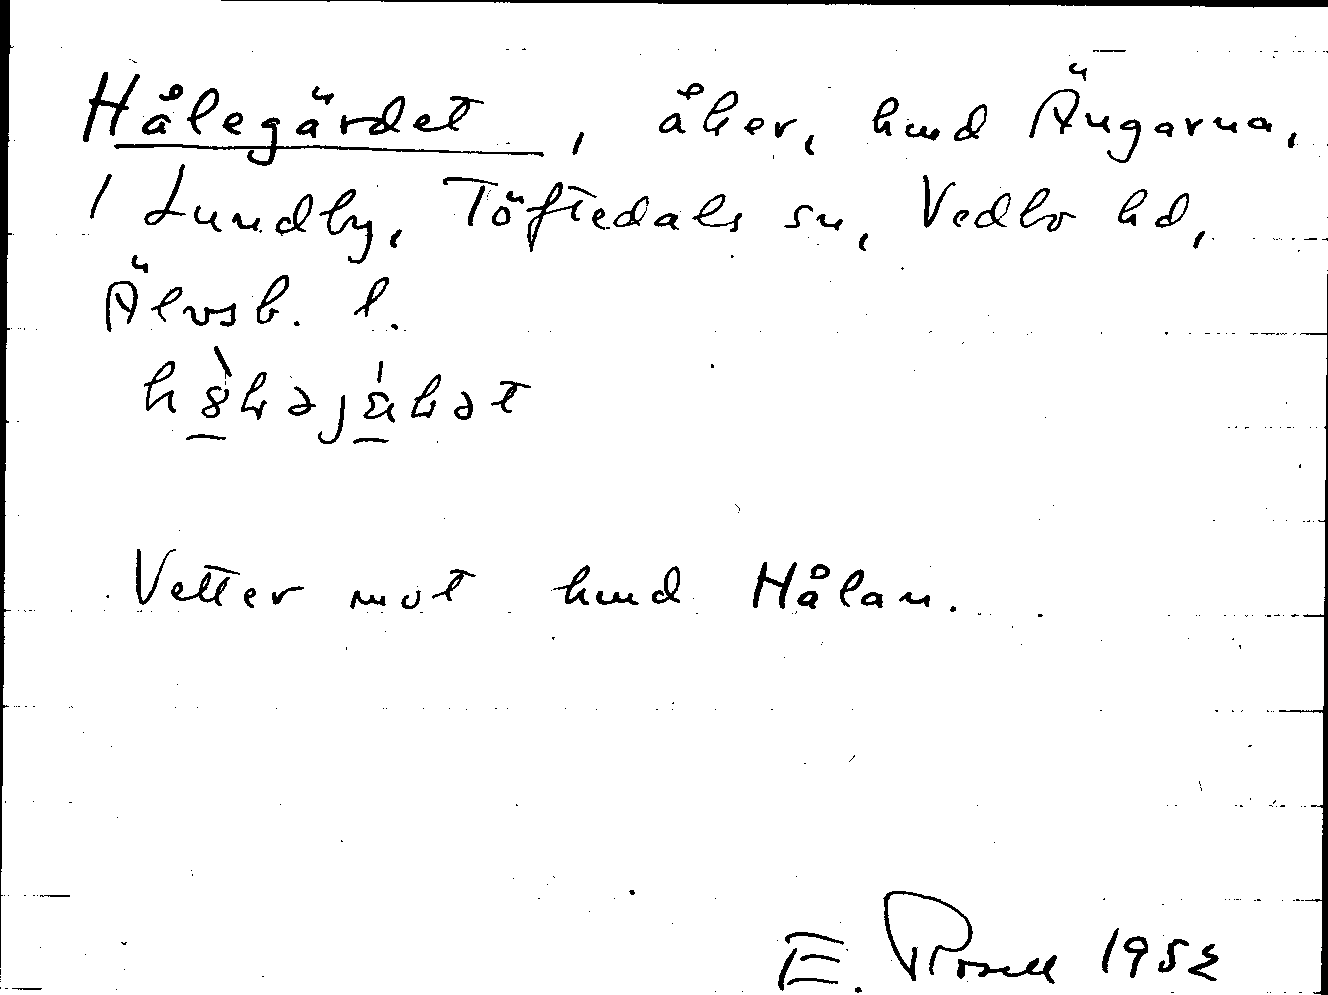 Hålegärdet, åker, hmd Ängarna,
1 Lundby, Töftedals sn, Vedbo hd,
Älvsb. l.
Vetter mot hmd Hålan.
E. Rosell 1952